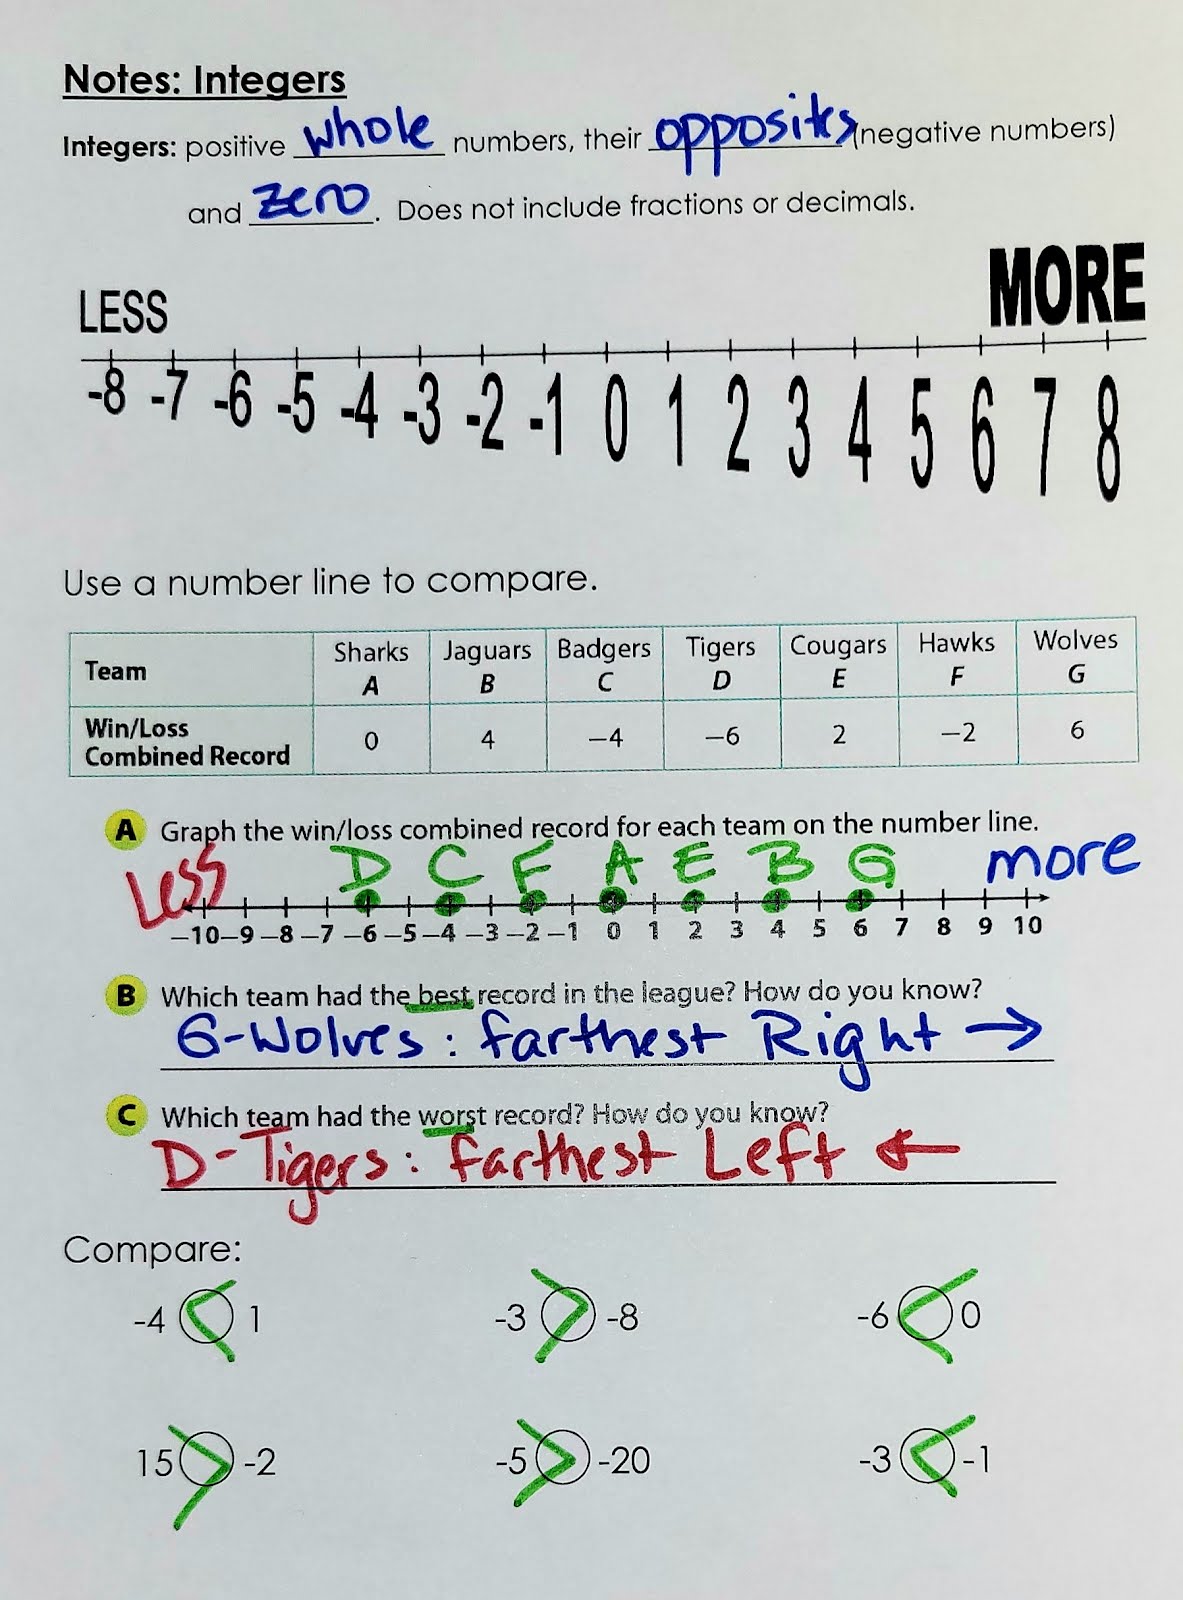 Notes: Integers
Integers: positive whole numbers, their opposites (negative numbers)
and zero. Does not include fractions or decimals.
LESS MORE
-8 -7 -6 -5 -4 -3 -2 -1 0 1 2 3 4 5 6 7 8
Use a number line to compare.
Team Sharks A Jaguars B Badgers C Tigers D Cougars E Hawks F Wolves G
Win/Loss Combined Record 0 4 −4 −6 2 −2 6
A Graph the win/loss combined record for each team on the number line.
Less D C F A E B G more
−10 −9 −8 −7 −6 −5 −4 −3 −2 −1 0 1 2 3 4 5 6 7 8 9 10
B Which team had the best record in the league? How do you know?
G-Wolves: farthest Right →
C Which team had the worst record? How do you know?
D-Tigers: farthest Left ←
Compare:
-4 < 1 -3 > -8 -6 < 0
15 > -2 -5 > -20 -3 < -1